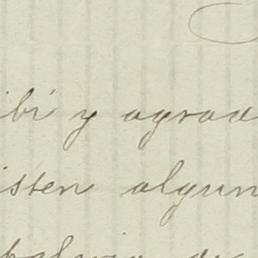 ibí y agrad
isten algun